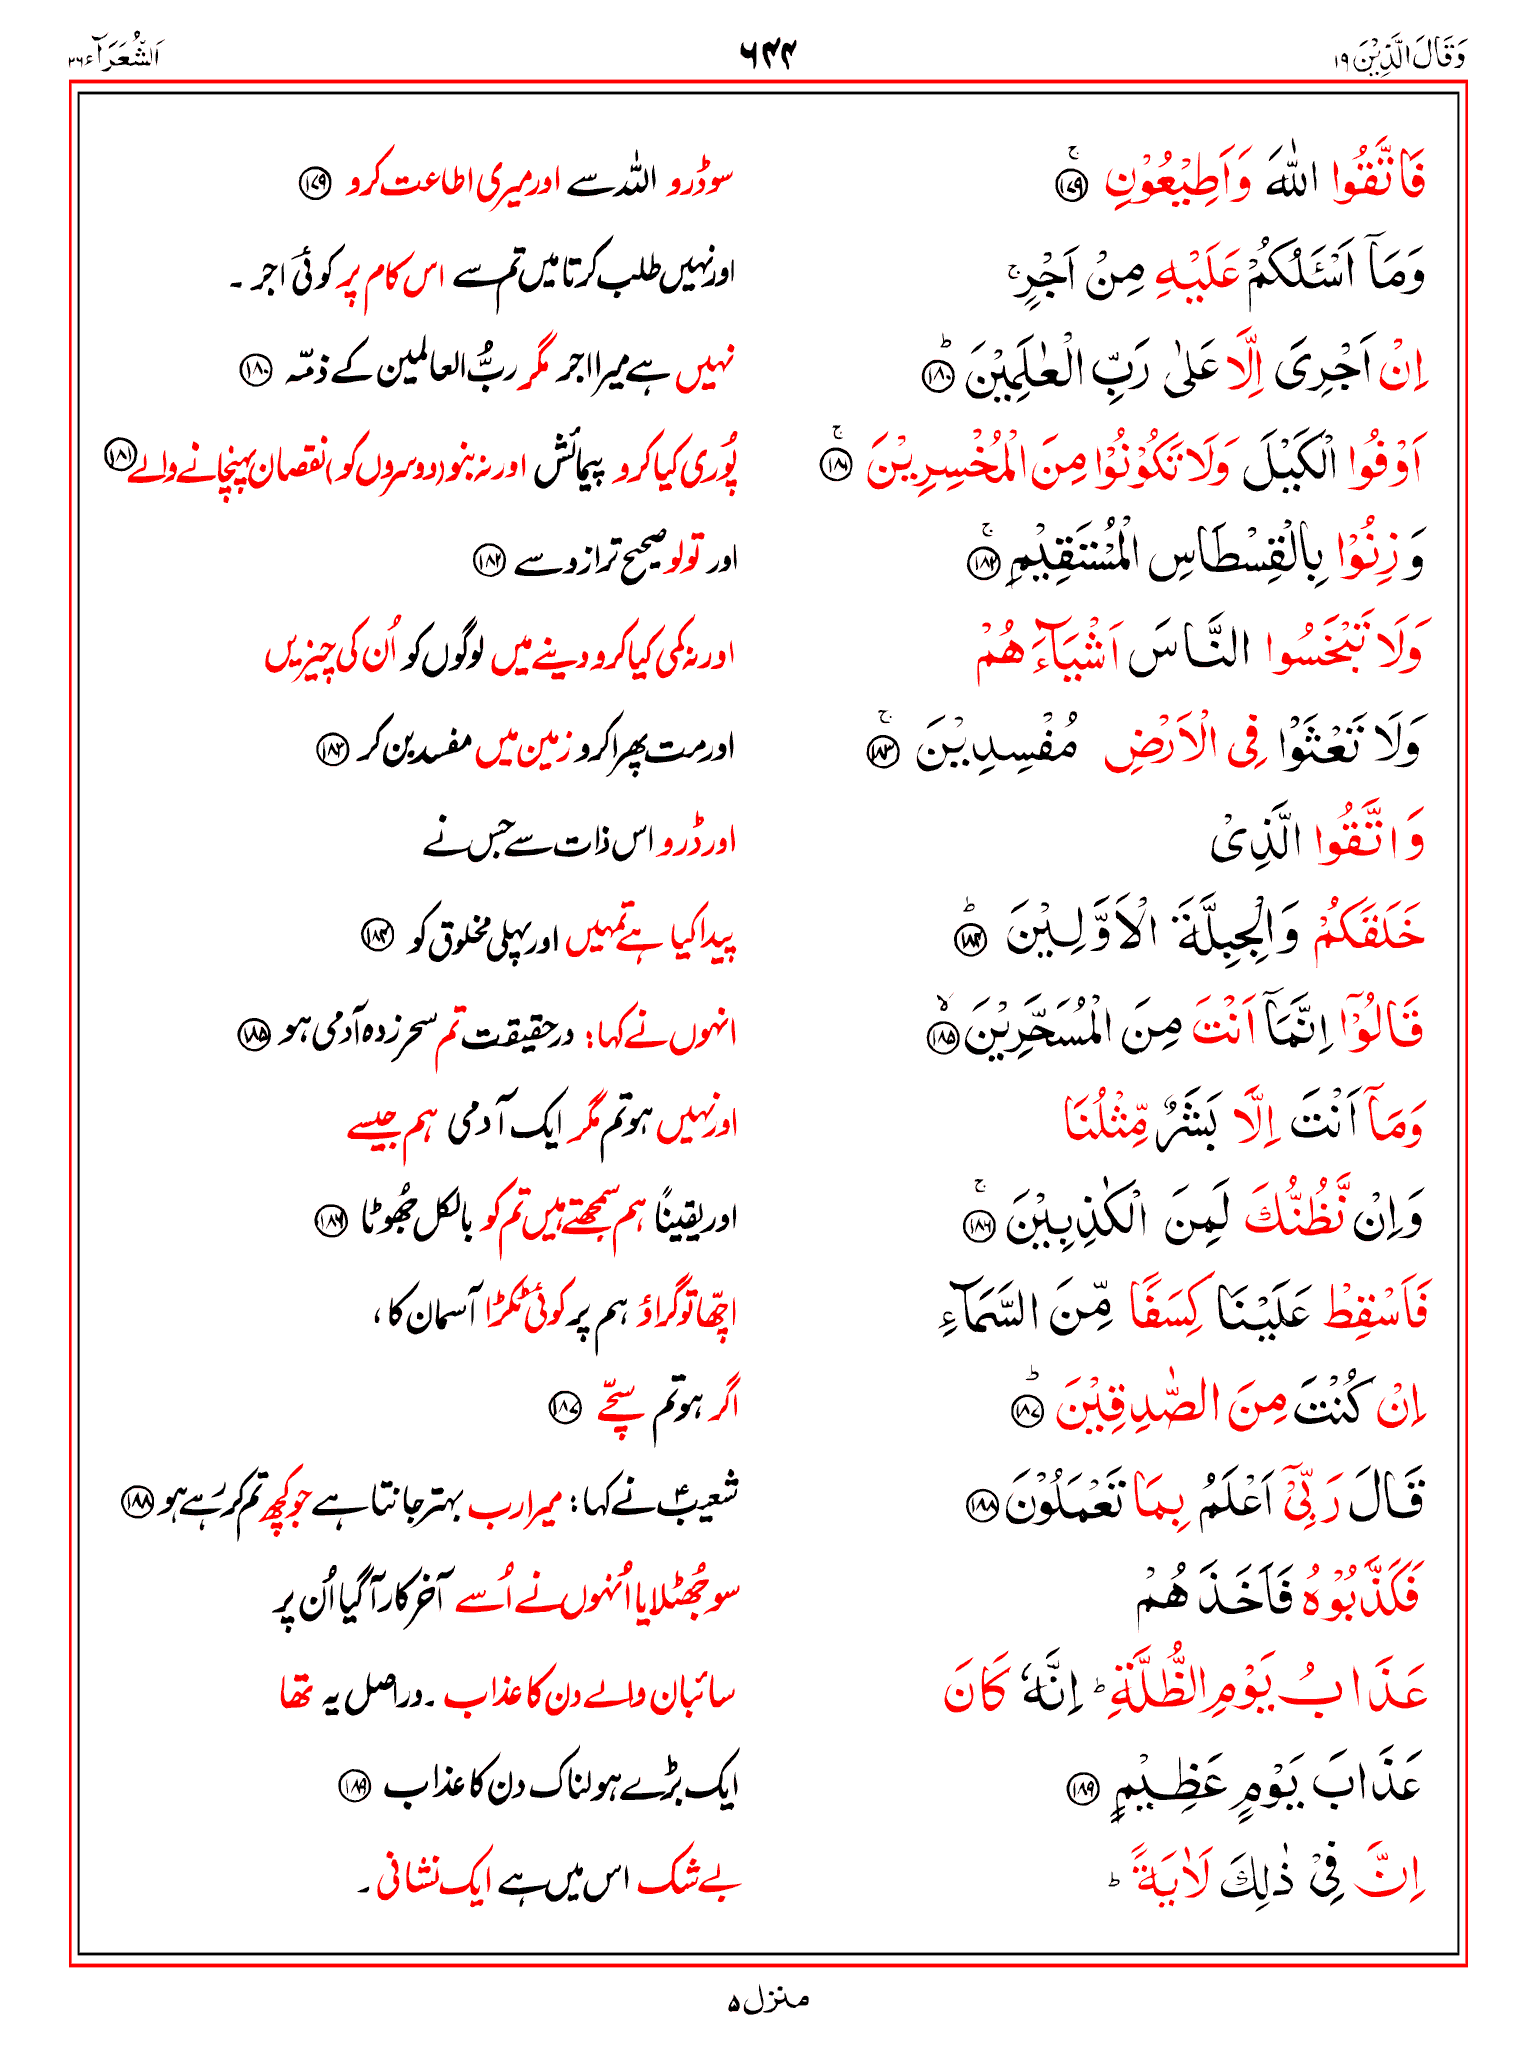 وَقَالَ الَّذِيْنَ ۱۹ ۶۴۴ اَلشُّعَرَآء ۲۶
فَاتَّقُوا اللّٰهَ وَاَطِيْعُوْنِ ۚ ۱۷۹ سو ڈرو اللہ سے اور میری اطاعت کرو ۱۷۹
وَمَاۤ اَسْـَٔلُكُمْ عَلَيْهِ مِنْ اَجْرٍ ۚ اور نہیں طلب کرتا میں تم سے اس کام پر کوئی اجر ۔
اِنْ اَجْرِىَ اِلَّا عَلٰى رَبِّ الْعٰلَمِيْنَ ؕ ۱۸۰ نہیں ہے میرا اجر مگر ربُّ العالمین کے ذمّہ ۱۸۰
اَوْفُوا الْكَيْلَ وَلَا تَكُوْنُوْا مِنَ الْمُخْسِرِيْنَ ۚ ۱۸۱ پُوری کیا کرو پیمائش اور نہ بنو (دوسروں کو) نقصان پہنچانے والے ۱۸۱
وَ زِنُوْا بِالْقِسْطَاسِ الْمُسْتَقِيْمِ ۚ ۱۸۲ اور تولو صحیح ترازو سے ۱۸۲
وَلَا تَبْخَسُوا النَّاسَ اَشْيَآءَهُمْ اور نہ کمی کیا کرو دینے میں لوگوں کو اُن کی چیزیں
وَلَا تَعْثَوْا فِى الْاَرْضِ مُفْسِدِيْنَ ۚ ۱۸۳ اور مت پھرا کرو زمین میں مفسد بن کر ۱۸۳
وَ اتَّقُوا الَّذِىْ اور ڈرو اس ذات سے جس نے
خَلَقَكُمْ وَالْجِبِلَّةَ الْاَوَّلِيْنَ ؕ ۱۸۴ پیدا کیا ہے تمہیں اور پہلی مخلوق کو ۱۸۴
قَالُوْۤا اِنَّمَاۤ اَنْتَ مِنَ الْمُسَحَّرِيْنَ ۙ ۱۸۵ انہوں نے کہا: درحقیقت تم سحر زدہ آدمی ہو ۱۸۵
وَمَاۤ اَنْتَ اِلَّا بَشَرٌ مِّثْلُنَا اور نہیں ہو تم مگر ایک آدمی ہم جیسے
وَاِنْ نَّظُنُّكَ لَمِنَ الْكٰذِبِيْنَ ۚ ۱۸۶ اور یقیناً ہم سمجھتے ہیں تم کو بالکل جُھوٹا ۱۸۶
فَاَسْقِطْ عَلَيْنَا كِسَفًا مِّنَ السَّمَآءِ اچّھا تو گراؤ ہم پر کوئی ٹکڑا آسمان کا ،
اِنْ كُنْتَ مِنَ الصّٰدِقِيْنَ ؕ ۱۸۷ اگر ہو تم سچّے ۱۸۷
قَالَ رَبِّىْۤ اَعْلَمُ بِمَا تَعْمَلُوْنَ ۱۸۸ شعیبؑ نے کہا: میرا رب بہتر جانتا ہے جو کچھ تم کر رہے ہو ۱۸۸
فَكَذَّبُوْهُ فَاَخَذَهُمْ سو جُھٹلایا اُنہوں نے اُسے آخر کار آ گیا اُن پر
عَذَابُ يَوْمِ الظُّلَّةِ ؕ اِنَّهٗ كَانَ سائبان والے دن کا عذاب ۔ دراصل یہ تھا
عَذَابَ يَوْمٍ عَظِيْمٍ ۱۸۹ ایک بڑے ہولناک دن کا عذاب ۱۸۹
اِنَّ فِىْ ذٰلِكَ لَاٰيَةً ؕ بے شک اس میں ہے ایک نشانی ۔
منزل ۵